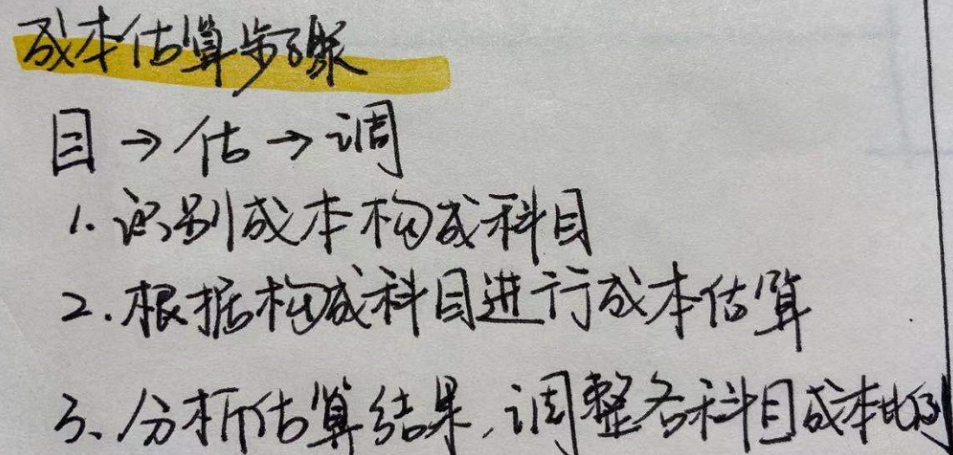 成本估算步骤
目→估→调
1.识别成本构成科目
2.根据构成科目进行成本估算
3、分析估算结果,调整各科目成本比例